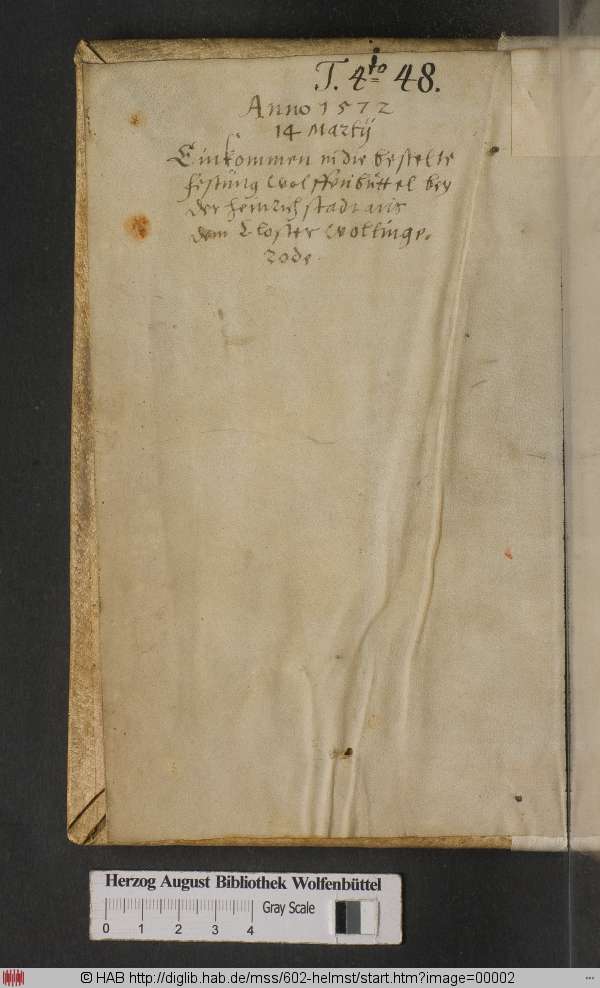 T. 4to 48.
Anno 1572
14 Martij
Einkommen in die bestelte
festüng Wolffenbüttel bey
der heinrichstadt aus
dem Closter Woltinge,
rode.
Herzog August Bibliothek Wolfenbüttel
Gray Scale
0 1 2 3 4
© HAB http://diglib.hab.de/mss/602-helmst/start.htm?image=00002